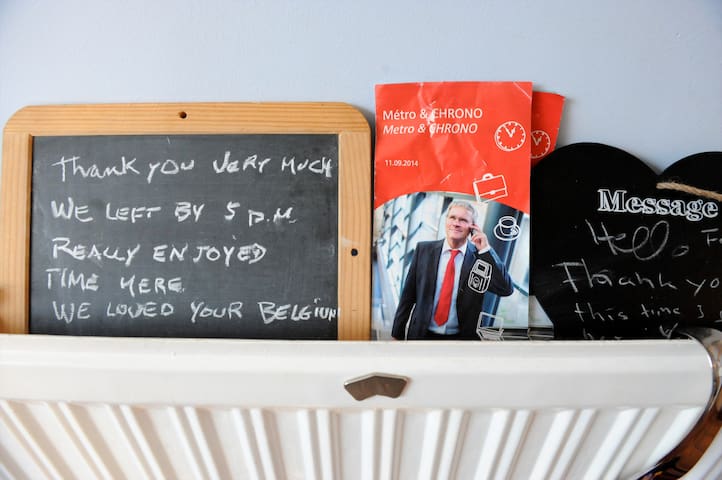 Thank you very much
We left by 5 p.m.
Really enjoyed
time here
We loved your Belgium
Métro & CHRONO
Metro & CHRONO
11.09.2014
Message
Hello,
Thank you
this time